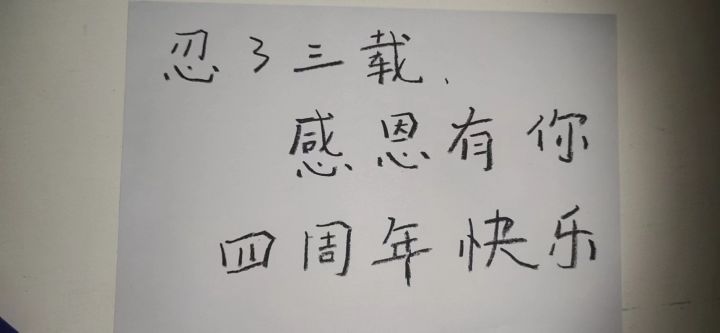 忍了三载,
感恩有你
四周年快乐